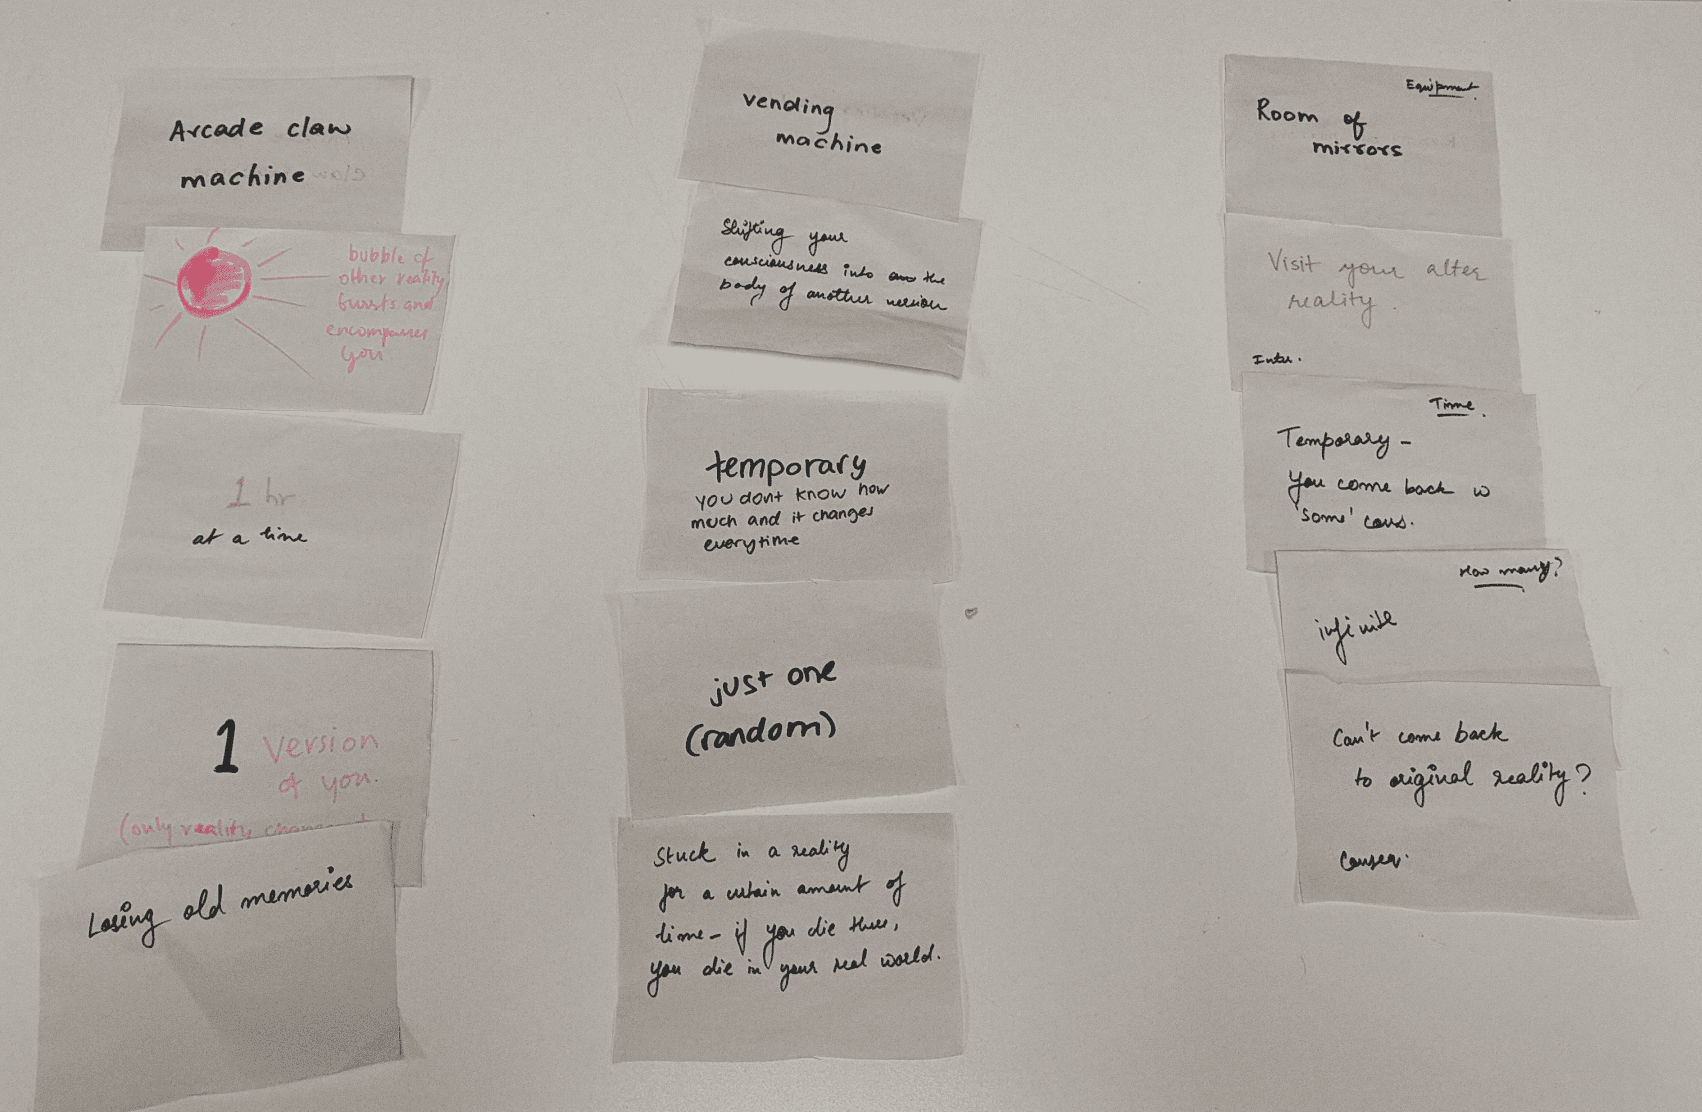 Arcade claw
machine
bubble of
other reality
bursts and
encompasses
you
1 hr
at a time
1 version
of you.
(only reality
Losing old memories
vending
machine
Shifting your
consciousness into the
body of another version
temporary
you dont know how
much and it changes
everytime
just one
(random)
Stuck in a reality
for a certain amount of
time - if you die there,
you die in your real world.
Equipment
Room of
mirrors
Visit your alter
reality.
Inter.
Time
Temporary -
You come back w
'some' cons.
How many?
infinite
Can't come back
to original reality?
Conseq.